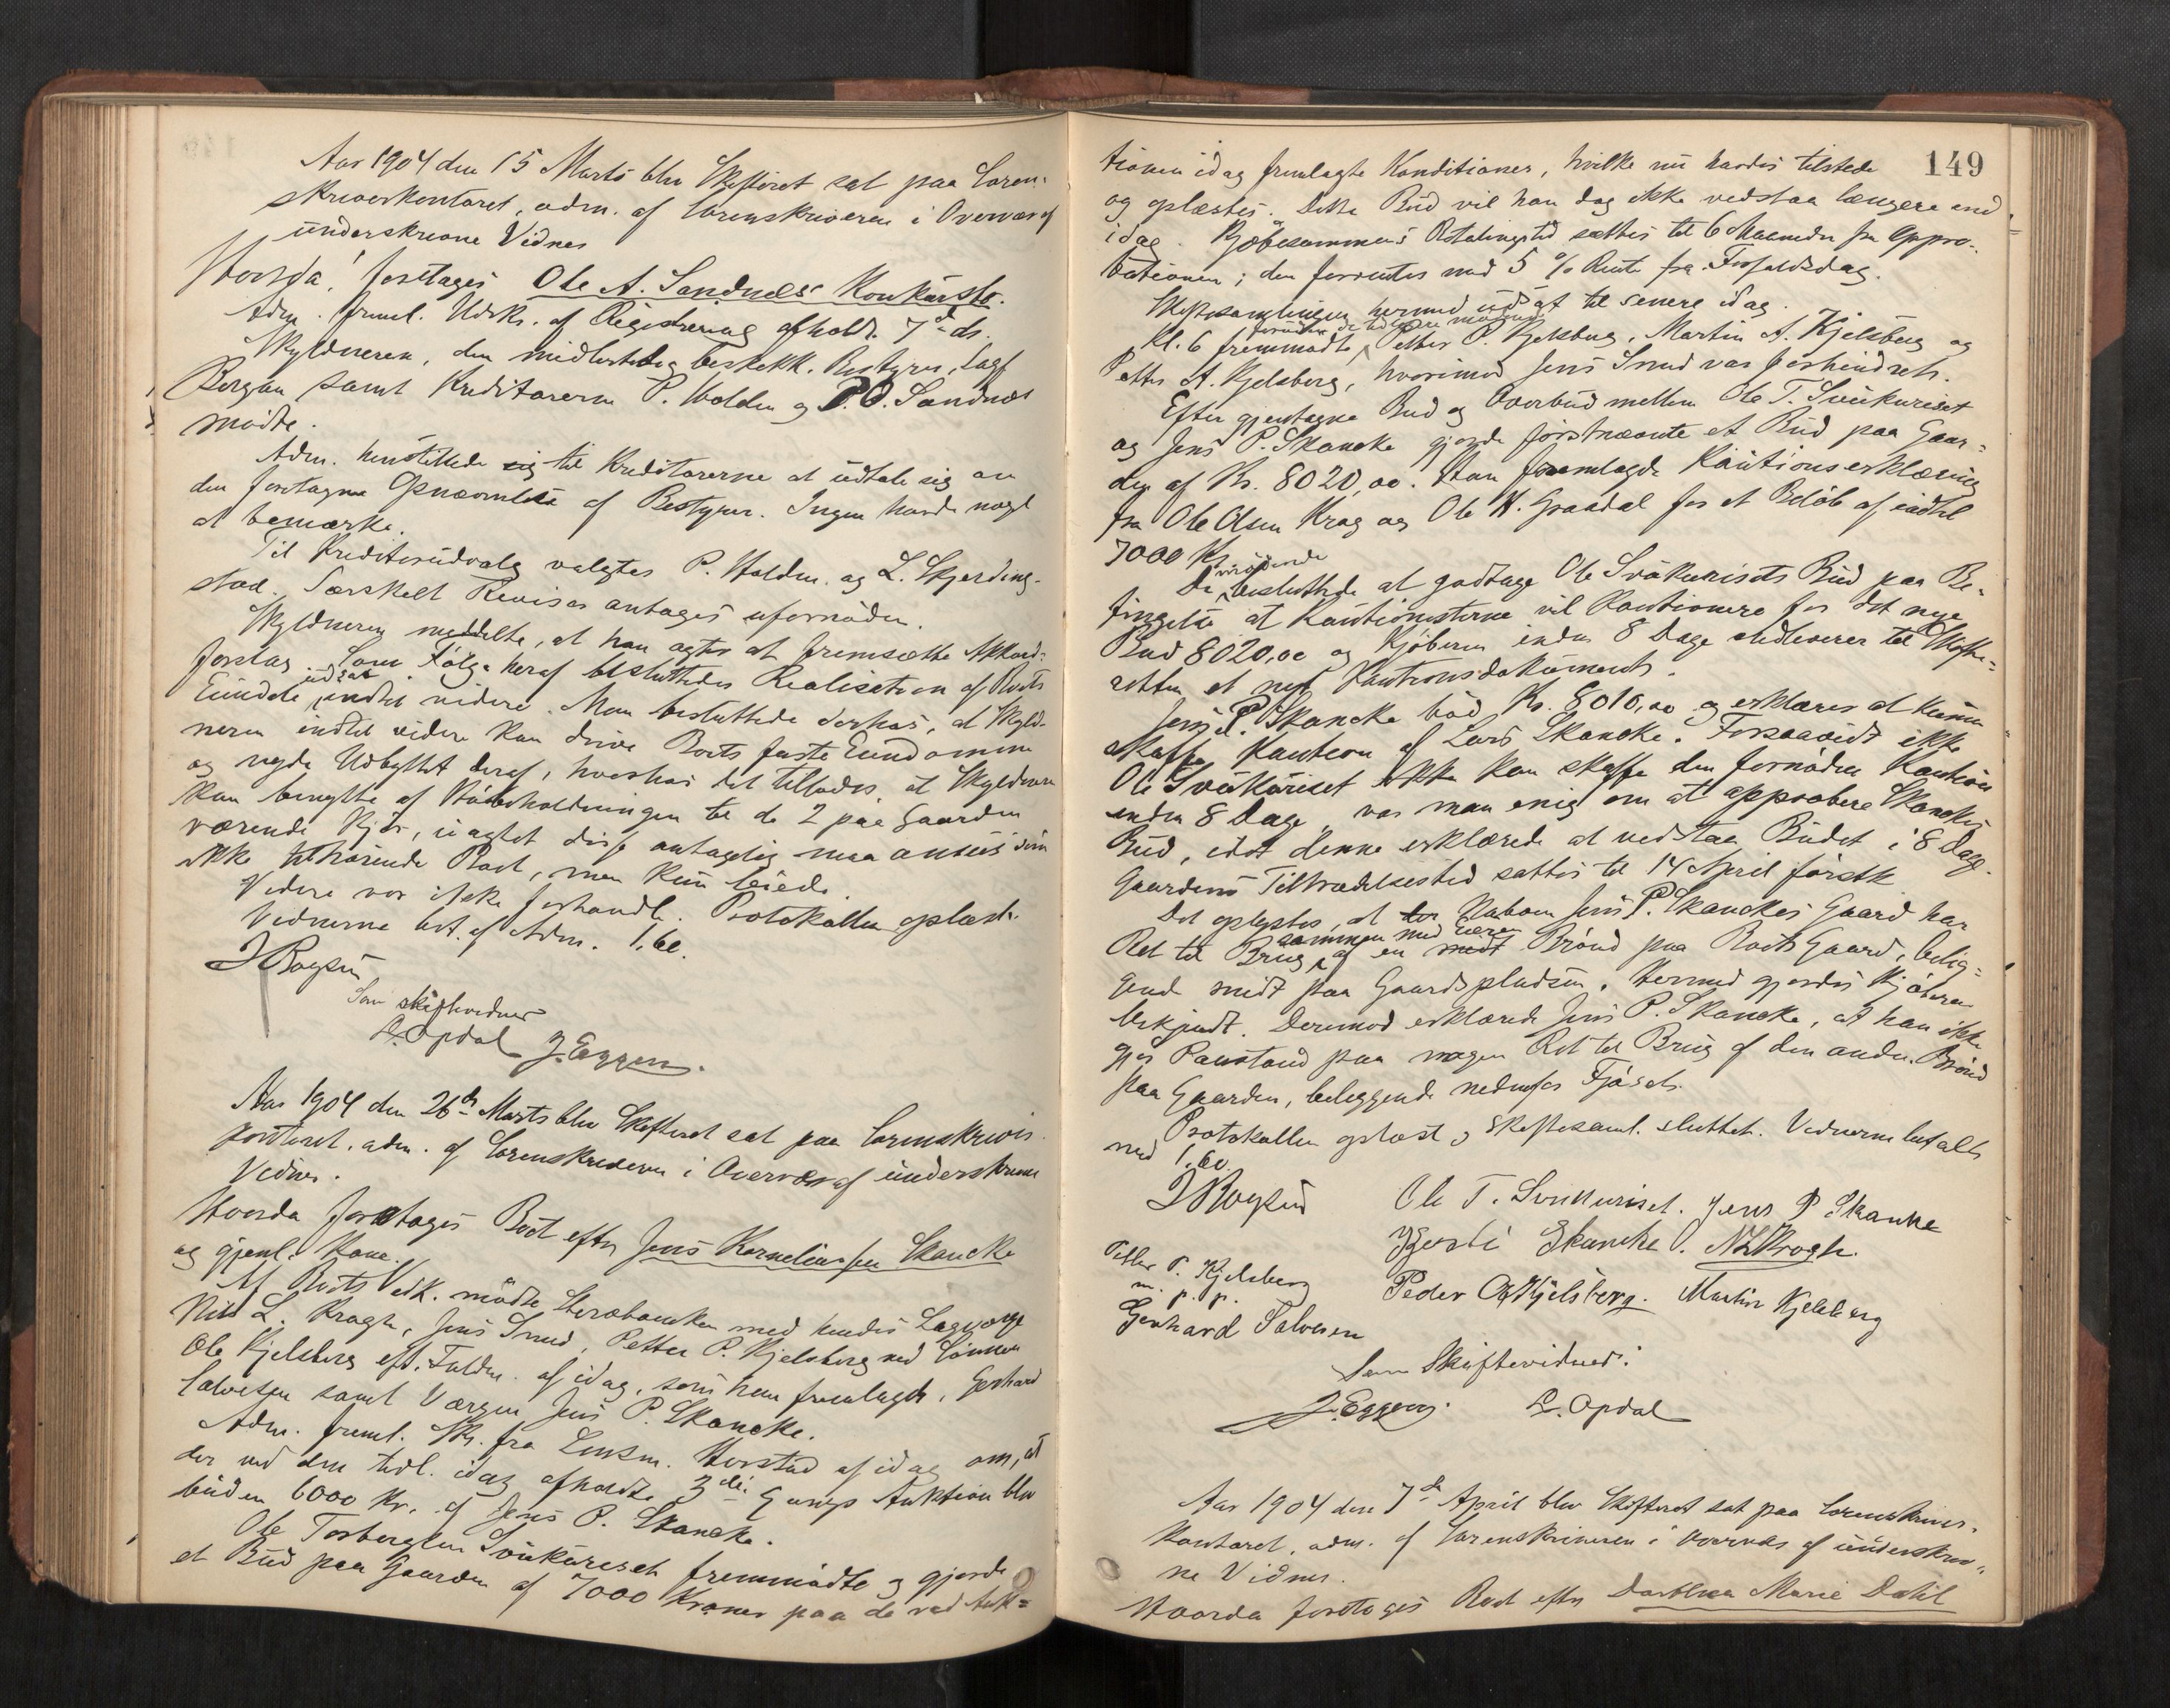 Aar 1904 den 15 Marts blev Skifteret sat paa Soren-
skriverkontoret, adm. af Sorenskriveren i Overvær af
underskrevne Vidner
Hvorda! foretages Ole A. Sandnes' Konkursbo.
Adm. freml. Udskr. af Registrering afholdt 7de ds.
Skyldneren, den midlertidig beskikk. Bestyrer, Sagf
Bergan samt Kreditorerne P. Holden og P. O. Sandnes
mødte.
Adm. henstillede til Kreditorerne at udtale sig om
den foretagne Opnævnelse af Bestyrer. Ingen havde noget
at bemærke.
Til Kreditorudvalg valgtes P. Holden og L. Skjerding-
stad. Særskilt Revisor antages ufornøden.
Skyldneren meddelte, at han agter at fremsætte Akkord-
forslag. Som Følge heraf besluttedes Realisation af Boets
Eiendele udsat indtil videre. Man besluttede derhos, at Skyld-
neren indtil videre kan drive Boets faste Eiendomme
og nyde Udbyttet deraf, hvorhos det tillades, at Skyldneren
kan benytte af Beholdningen til de 2 paa Gaarden
værende Kjør, uagtet disse antagelig maa ansees som
ikke tilhørende Boet, men kun leiede.
Videre var ikke forhandlet. Protokollen oplæst.
Vidnerne bet. af Adm. 1.60.
J Rogstad
Som skiftevidner
L. Opdal J. Eggen.
Aar 1904 den 26de Marts blev Skifteret sat paa Sorenskriver-
kontoret, adm. af Sorenskriveren i Overvær af underskrevne
Vidner.
Hvorda foretages Boet efter Jens Korneliussen Skancke
og gjenl. Kone.
Af Boets Vedk. mødte Sterboenken med hendes Lagværge
Nils L. Kragh, Jens Smed, Petter P. Kjelsberg ved Sønnen
Ole Kjelsberg eft. Fuldm. af idag, som han fremlagde, Gerhard
Salvesen samt Værgen Jens P. Skancke.
Adm. freml. Skr. fra Lensm. Horstad af idag om, at
der ved den tidl. idag afholdte 3die Gangs Auktion blev
buden 6000 Kr. af Jens P. Skancke.
Ole Torbergsen Svukuriset fremmødte og gjorde
et Bud paa Gaarden af 7000 Kroner paa de ved Auk-
149
tionen idag fremlagte Konditioner, hvilke nu havdes tilstede
og oplæstes. Dette Bud vil han dog ikke vedstaa længere end
idag. Kjøbesummens Betalingstid sættes til 6 Maaneder fra Appro-
bationen; den forrentes med 5 % Rente fra Forfaldsdag.
Skiftesamlingen hermed udsat til senere idag.
Kl. 6 fremmødte foruden de tidligere mødende Petter P. Kjelsberg, Martin A. Kjelsberg og
Petter A. Kjelsberg, hvorimod Jens Smed var forhindret.
Efter gjentagne Bud og Overbud mellem Ole T. Svukuriset
og Jens P. Skancke gjorde førstnævnte et Bud paa Gaar-
den af Kr. 8020,00. Han fremlagde Kautionserklæring
fra Ole Olsen Krog og Ole H. Graadal for et Beløb af indtil
7000 Kr.
De mødende besluttede at godtage Ole Svukurisets Bud paa Be-
tingelse at Kautionisterne vil kautionere for det nye
Bud 8020,00 og Kjøberen inden 8 Dage indleverer til Skifte-
retten et nyt Kautionsdokument.
Jens P. Skancke bød Kr. 8010,00 og erklærer at kunne
skaffe Kaution af Lars Skancke. Forsaavidt ikke
Ole Svukuriset ikke kan skaffe den fornødne Kaution
inden 8 Dage, var man enig om at approbere Skanckes
Bud, idet denne erklærede at vedstaa Budet i 8 Dage.
Gaardens Tiltrædelsestid sattes til 14 April førstk.
Det oplystes, at Naboen Jens P. Skanckes Gaard har
Ret til Brug sammen med Eieren af en Brønd paa Boets Gaard, belig-
gende midt paa Gaardspladsen. Hermed gjordes Kjøberen
bekjendt. Derimod erklærede Jens P. Skancke, at han ikke
gjør Paastand paa nogen Ret til Brug af den anden Brønd
paa Gaarden, beliggende nedenfor Fjøset.
Protokollen oplæst og Skiftesaml. sluttet. Vidnerne betalt
med 1.60.
J Rogstad Ole T. Svukuriset. Jens P Skanke
Kjersti Skancke. N L Kragh.
Petter P. Kjelsberg
m. p. p. Peder A Kjelsberg. Martin Kjelsberg
Gerhard Salvesen
Som Skiftevidner:
J. Eggen. L. Opdal
Aar 1904 den 7de April blev Skifteret sat paa Sorenskriver-
kontoret, adm. af Sorenskriveren i Overvær af underskrev-
ne Vidner.
Hvorda foretoges Boet efter Dorthea Marie Dahl